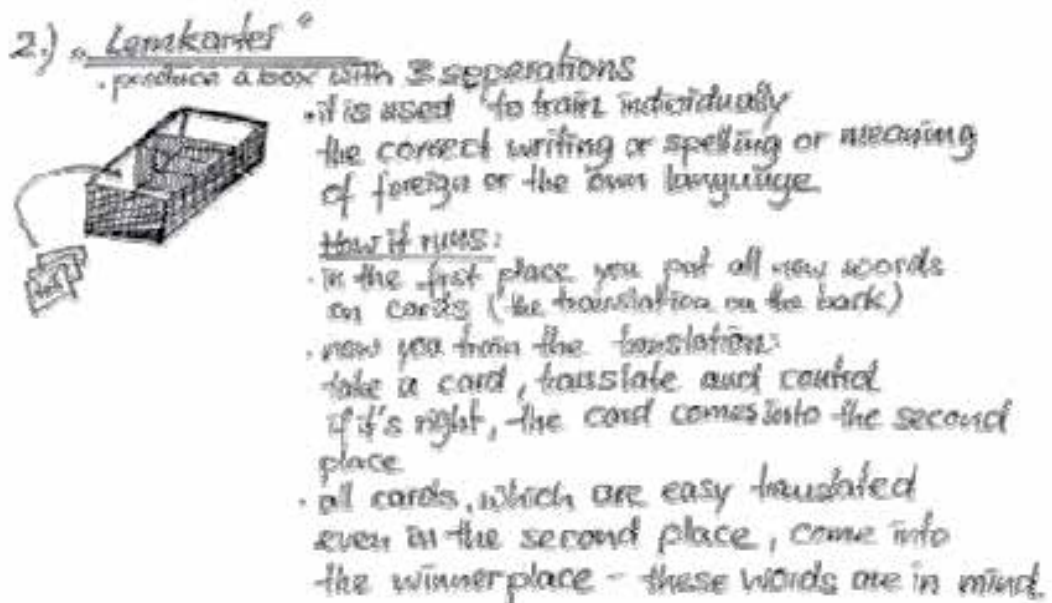 2.) „Lernkartei“
· produce a box with 3 seperations
· it is used to train individually
the correct writing or spelling or meaning
of foreign or the own language
How it runs:
· in the first place you put all new words
on cards (the translation on the back)
· now you train the translation:
take a card, translate and control
if it's right, the card comes into the second
place
· all cards, which are easy translated
even in the second place, come into
the winnerplace - these words are in mind.